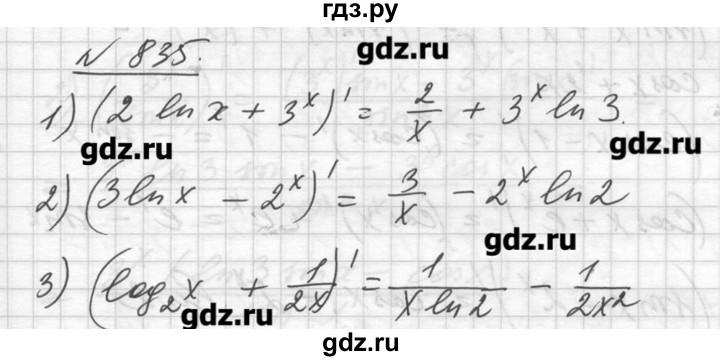 гдз.ру
№ 835.
gdz.ru
1) (2 ln x + 3^x)' = 2/x + 3^x ln 3.
gdz.ru
gdz.ru
2) (3 ln x - 2^x)' = 3/x - 2^x ln 2
gdz.ru
3) (log_2 x + 1/2x)' = 1/(x ln 2) - 1/(2x^2)
gdz.ru
gdz.ru